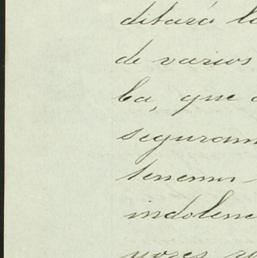 ditará l
de varios
ba, que
seguram
tenemos
indolen
yores